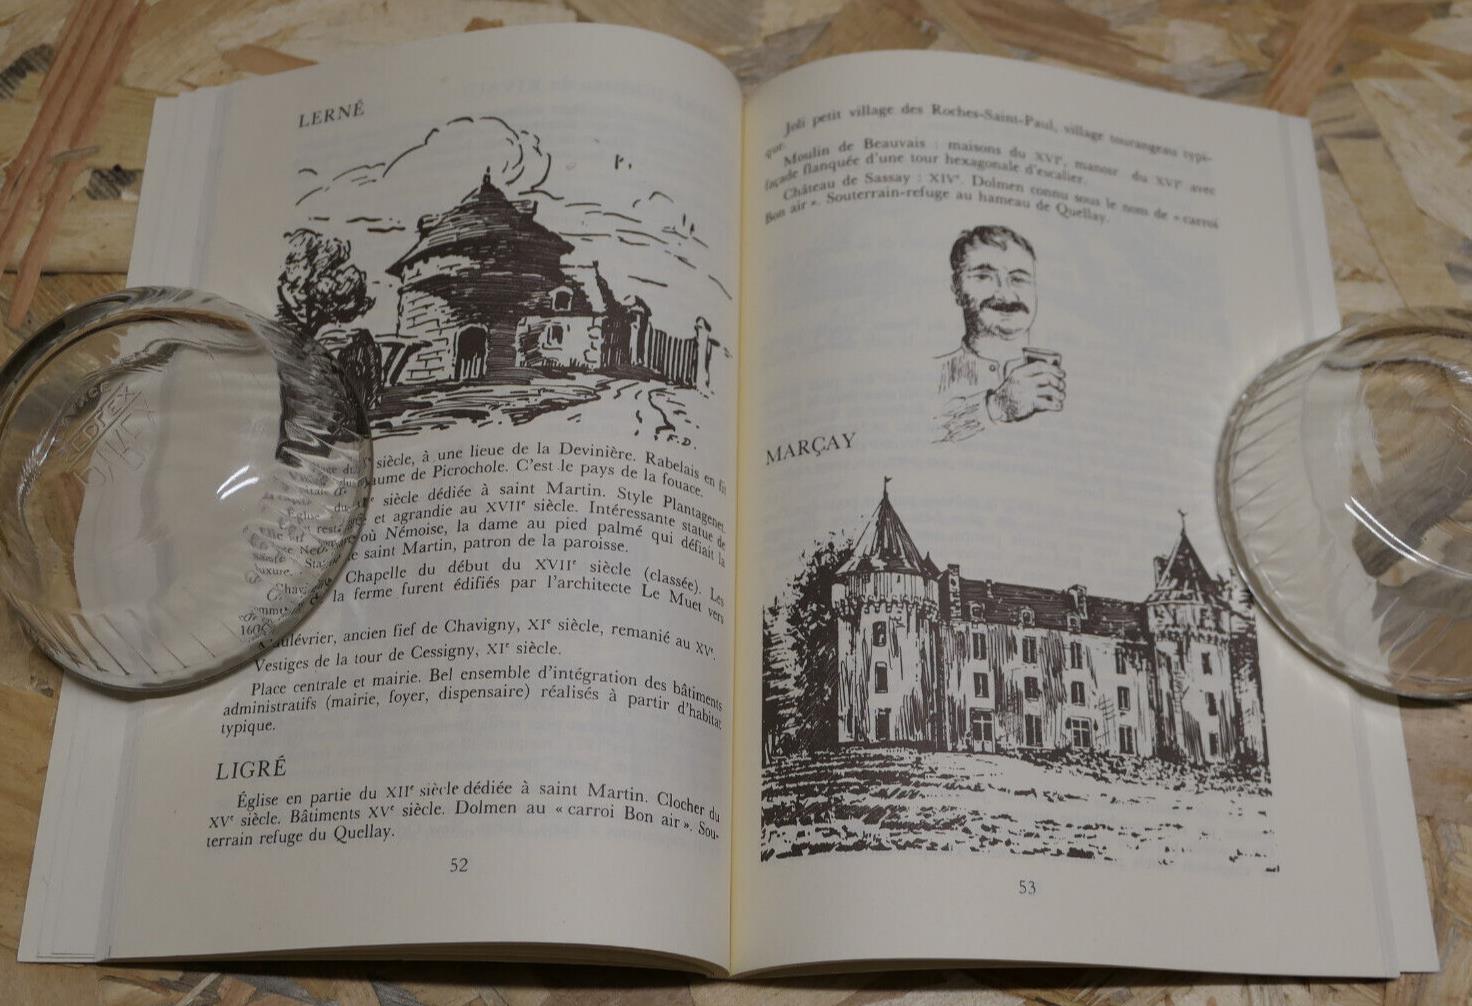 LERNÉ
F.D.
siècle, à une lieue de la Devinière. Rabelais en fit
aume de Picrochole. C'est le pays de la fouace.
siècle dédiée à saint Martin. Style Plantagenet.
et agrandie au XVIIᵉ siècle. Intéressante statue de
où Némoise, la dame au pied palmé qui défiait la
saint Martin, patron de la paroisse.
Chapelle du début du XVIIᵉ siècle (classée). Les
la ferme furent édifiés par l'architecte Le Muet vers
ulévrier, ancien fief de Chavigny, XIᵉ siècle, remanié au XVᵉ.
Vestiges de la tour de Cessigny, XIᵉ siècle.
Place centrale et mairie. Bel ensemble d'intégration des bâtiments
administratifs (mairie, foyer, dispensaire) réalisés à partir d'habitat
typique.
LIGRÉ
Église en partie du XIIᵉ siècle dédiée à saint Martin. Clocher du
XVᵉ siècle. Bâtiments XVᵉ siècle. Dolmen au « carroi Bon air ». Sou-
terrain refuge du Quellay.
52
Joli petit village des Roches-Saint-Paul, village tourangeau typi-
que.
Moulin de Beauvais : maisons du XVIᵉ, manoir du XVIᵉ avec
façade flanquée d'une tour hexagonale d'escalier.
Château de Sassay : XIVᵉ. Dolmen connu sous le nom de « carroi
Bon air ». Souterrain-refuge au hameau de Quellay.
MARÇAY
53